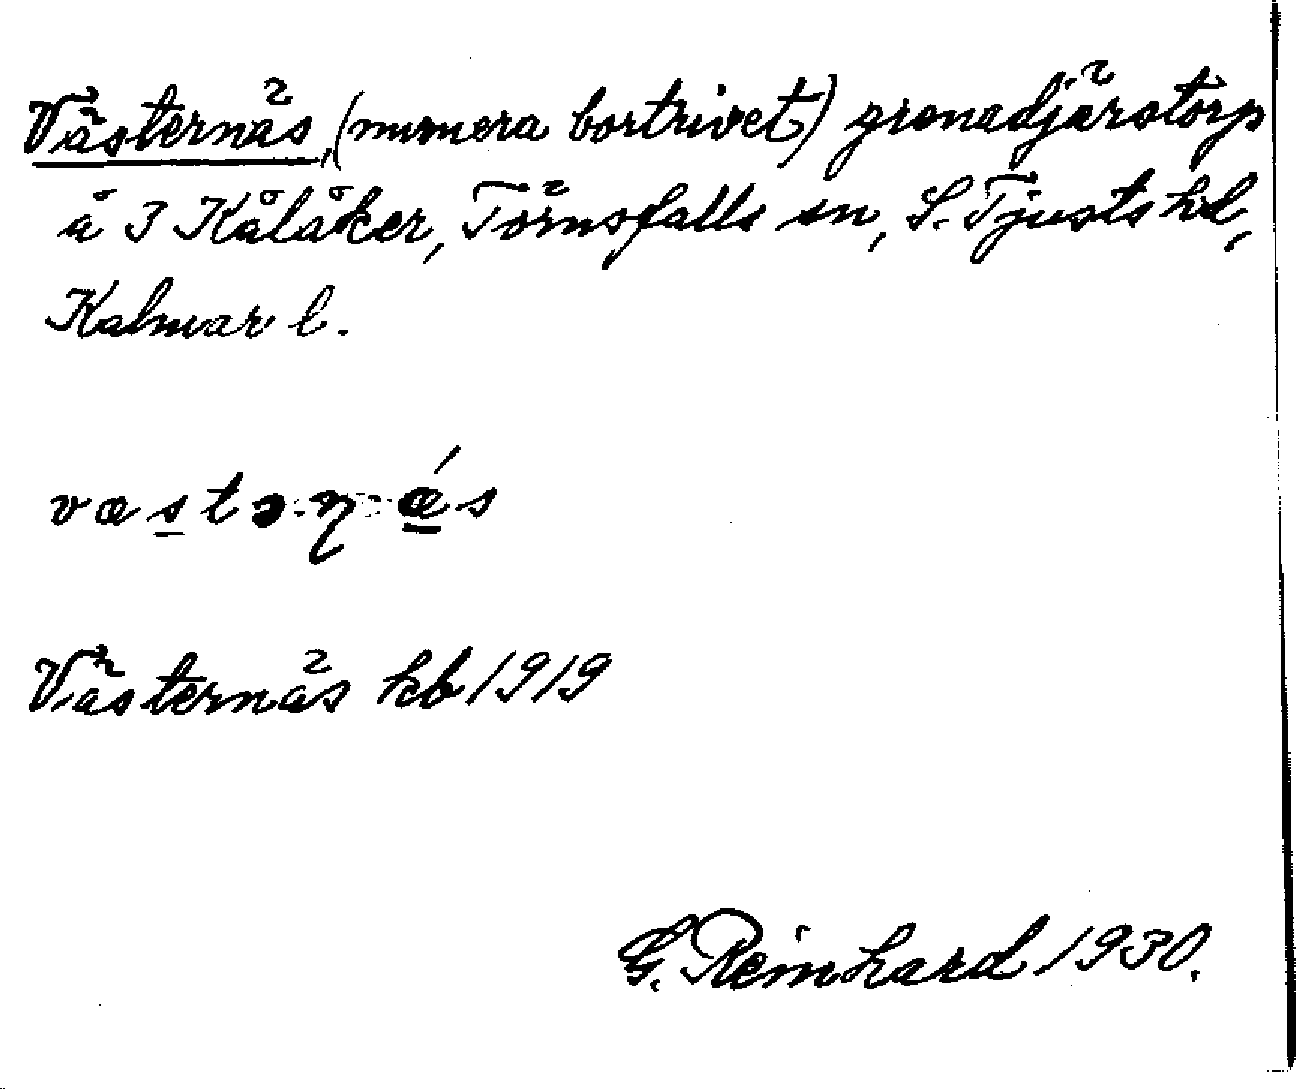 Västernäs, (numera bortrivet) grenadjärstorp
å 3 Kålåker, Törnsfalls sn, S. Tjusts hd,
Kalmar l.
væstəɳ-ǽs
Västernäs kb 1919
G. Reinhard 1930.